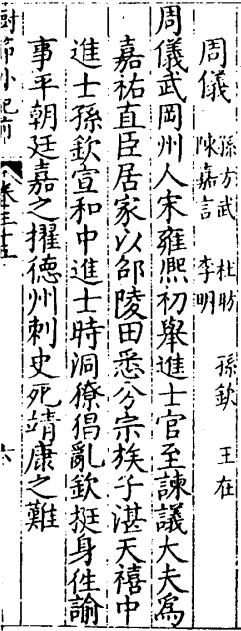 周儀 孫方武 杜昉 孫欽 王在
陳嘉言 李明
周儀武岡州人宋雍熙初舉進士官至諫議大夫爲
嘉祐直臣居家以邵陵田悉分宗族子湛天禧中
進士孫欽宣和中進士時洞獠猖亂欽挺身徃諭
事平朝廷嘉之擢德州刺史死靖康之難
小紀前
卷三十五
六